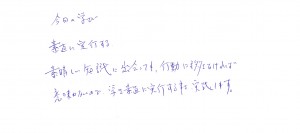 今日の学び
素直に実行する
素晴しい知識に出会っても、行動に移さなければ
意味がないので、学を素直に実行する事を実践します。